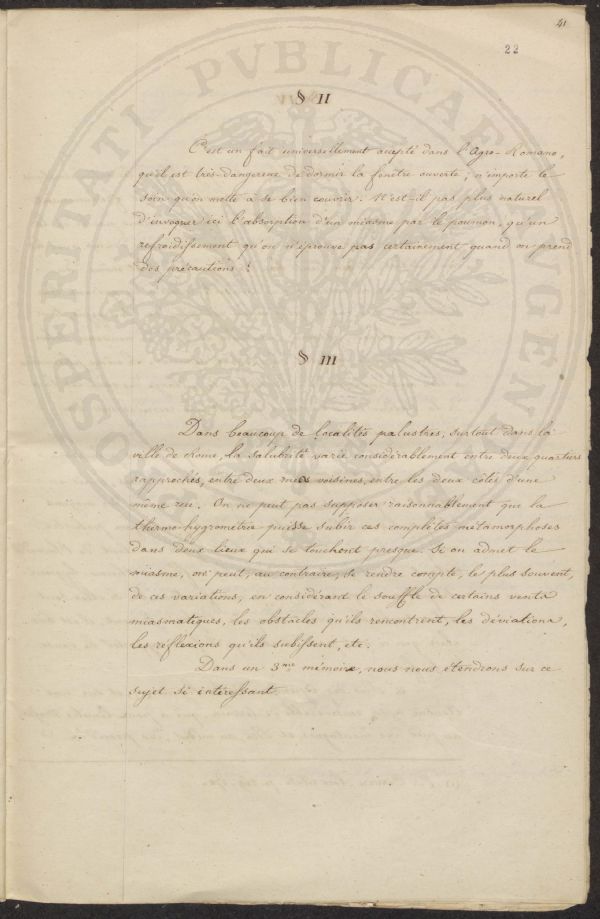 41
22
§ II
C'est un fait universellement accepté dans l'Agro-Romano,
qu'il est très-dangereux de dormir la fenêtre ouverte, n'importe le
soin qu'on mette à se bien couvrir. N'est-il pas plus naturel
d'invoquer ici l'absorption d'un miasme par le poumon, qu'un
refroidissement qu'on n'éprouve pas certainement quand on prend
des précautions?
§ III
Dans beaucoup de localités palustres, surtout dans la
ville de Rome, la salubrité varie considérablement entre deux quartiers
rapprochés, entre deux rues voisines, entre les deux côtés d'une
même rue. On ne peut pas supposer raisonnablement que la
thermo-hygrométrie puisse subir ces complètes métamorphoses
dans deux lieux qui se touchent presque. Si on admet le
miasme, on peut, au contraire, se rendre compte, le plus souvent,
de ces variations, en considérant le souffle de certains vents
miasmatiques, les obstacles qu'ils rencontrent, les déviations,
les réflexions qu'ils subissent, etc.
Dans un 3me mémoire, nous nous étendrons sur ce
sujet si intéressant.
PROSPERITATI PVBLICAE AVGENDAE